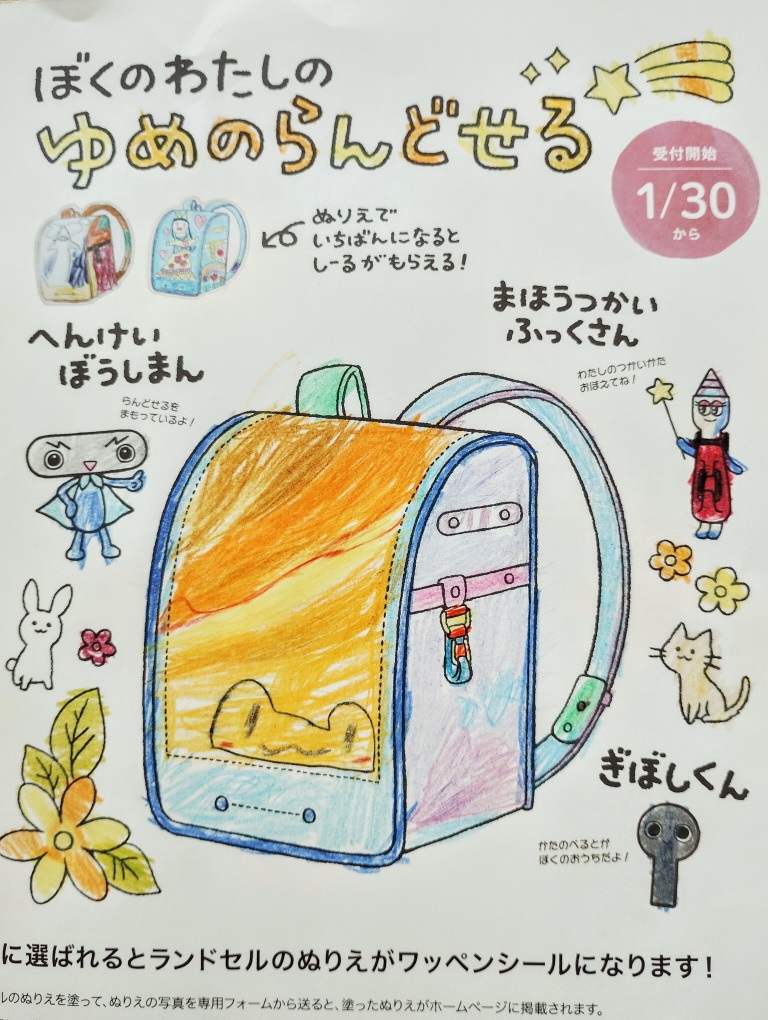 ぼくのわたしの
ゆめのらんどせる
受付開始
1/30
から
ぬりえで
いちばんになると
しーるがもらえる!
まほうつかい
ふっくさん
わたしのつかいかた
おぼえてね!
へんけい
ぼうしまん
らんどせるを
まもっているよ!
ぎぼしくん
かたのべるとが
ぼくのおうちだよ!
に選ばれるとランドセルのぬりえがワッペンシールになります!
ルのぬりえを塗って、ぬりえの写真を専用フォームから送ると、塗ったぬりえがホームページに掲載されます。